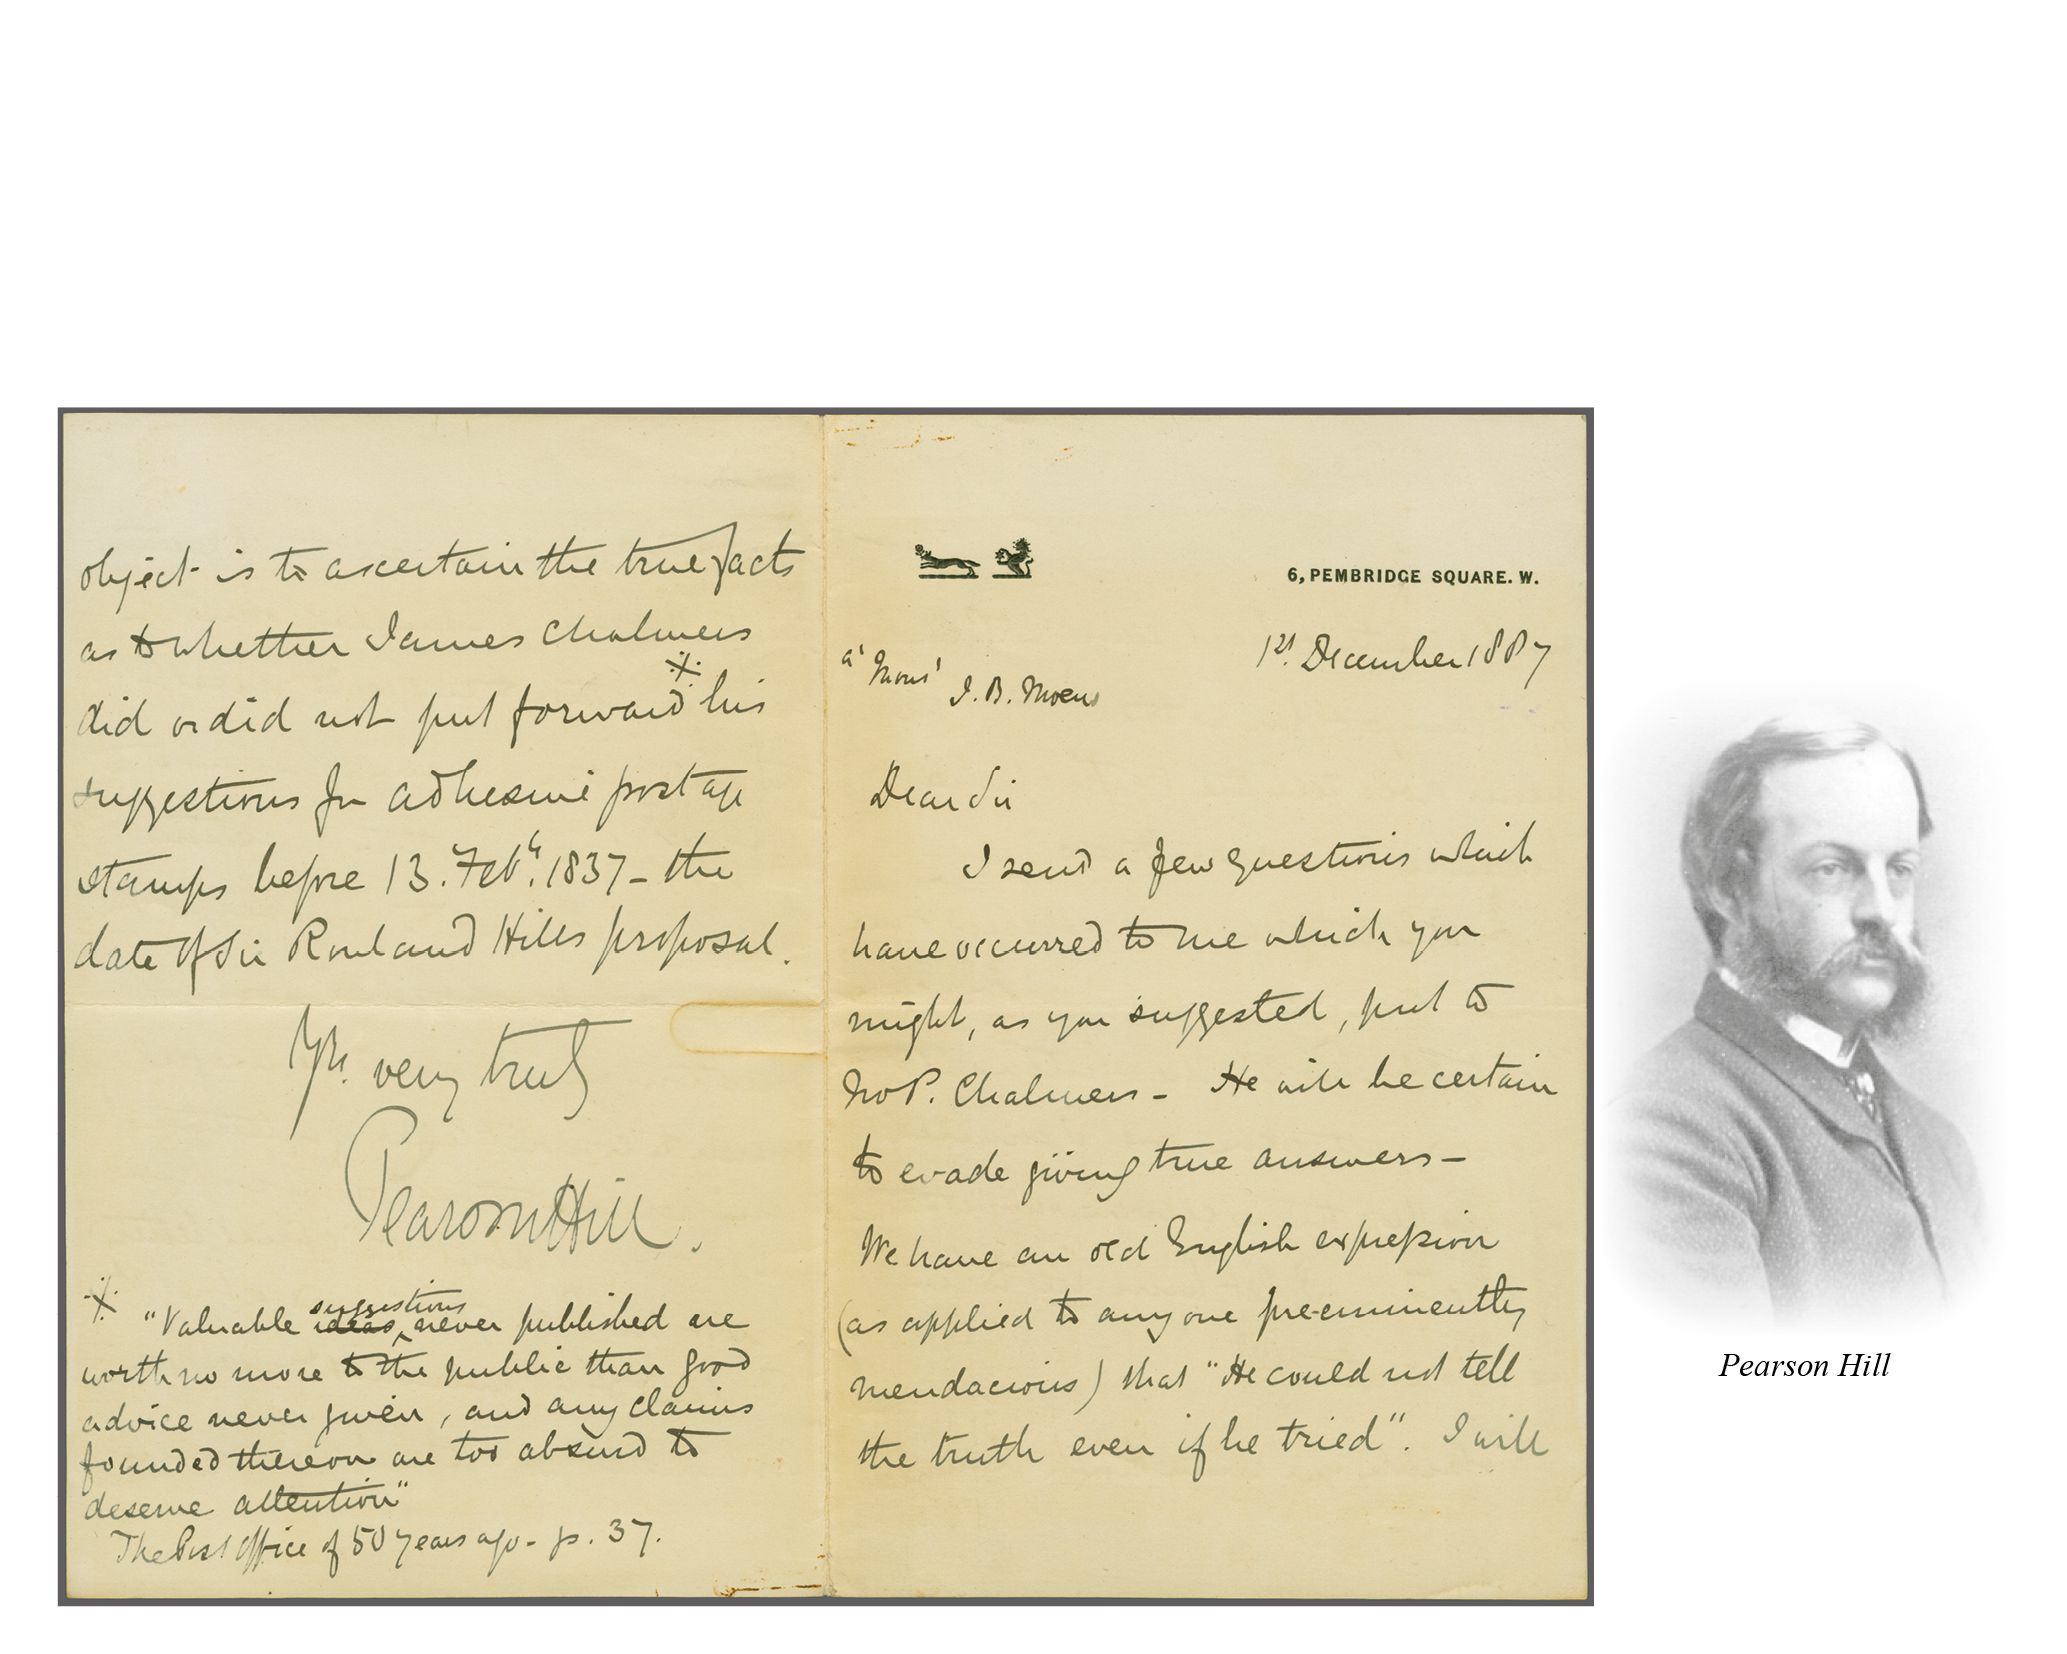 6, PEMBRIDGE SQUARE. W.
1st. December 1887
a' Mons' J. B. Moens
Dear Sir
I send a few questions which
have occurred to me which you
might, as you suggested, put to
Mr P. Chalmers - He will be certain
to evade giving true answers -
We have an old English expression
(as applied to any one pre-eminently
mendacious) that "He could not tell
the truth even if he tried". I will
object is to ascertain the true facts
as to whether James Chalmers
did or did not put forward his
suggestions for adhesive postage
stamps before 13. Feby. 1837 - the
date of Sir Rowland Hills proposal.
Yrs. very truly
Pearson Hill.
suggestions
"Valuable ideas never published are
worth no more to the public than good
advice never given, and any claims
founded thereon are too absurd to
deserve attention"
The Post Office of 50 years ago - p. 37.
Pearson Hill